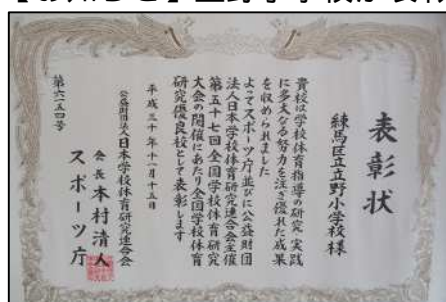 表彰状
練馬区立立野小学校様
貴校は学校体育指導の研究・実践
に多大なる努力を注ぎ優れた成果
を収められました
よってスポーツ庁並びに公益財団
法人日本学校体育研究連合会主催
第五十七回全国学校体育研究
大会の開催にあたり全国学校体育
研究優良校として表彰します
平成三十年十一月十五日
公益財団法人日本学校体育研究連合会
会長 本村清人
スポーツ庁
第六一五四号